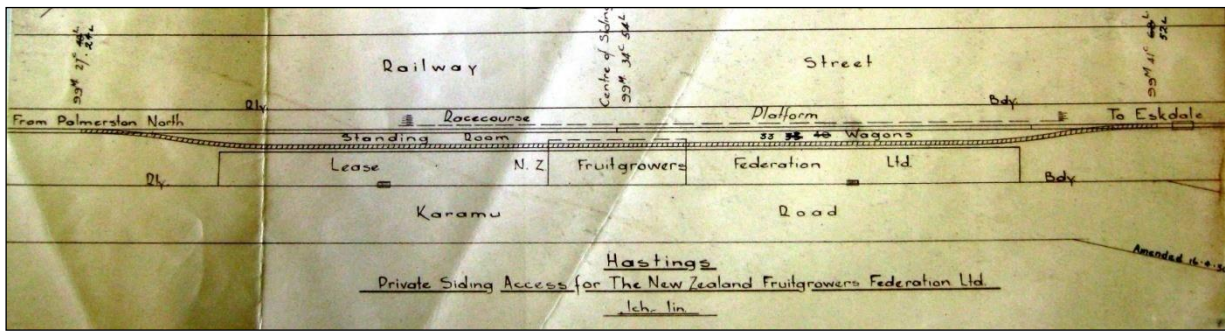 99M 27C 24L
Centre of Siding
99M 34C 54L
99M 41C 52L
Railway Street
Rly. Bdy.
Racecourse Platform
From Palmerston North
To Eskdale
Standing Room 33 Wagons
Lease N. Z. Fruitgrowers Federation Ltd.
Rly. Bdy
Karamu Road
Amended 16.4.
Hastings
Private Siding Access for The New Zealand Fruitgrowers Federation Ltd.
1ch- 1in.